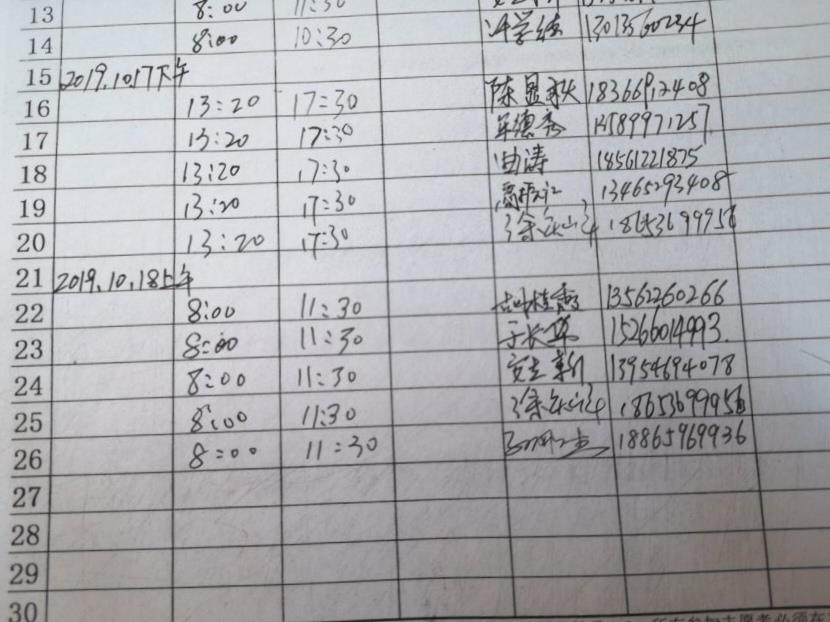 13 8:00 11:30
14 8:00 10:30 13013560234
15 2019.10.17下午
16 13:20 17:30 陈显秋
17 13:20 17:30 德秀
18 13:20 17:30 曲涛 18561221875
19 13:20 17:30 13465293408
20 13:20 17:30 徐 18653699956
21 2019.10.18上午
22 8:00 11:30 胡桂 13562260266
23 8:00 11:30 于长 15266014993.
24 8:00 11:30 安立新 13954694078
25 8:00 11:30 徐 18653699956
26 8:00 11:30 18865969936
27
28
29
30